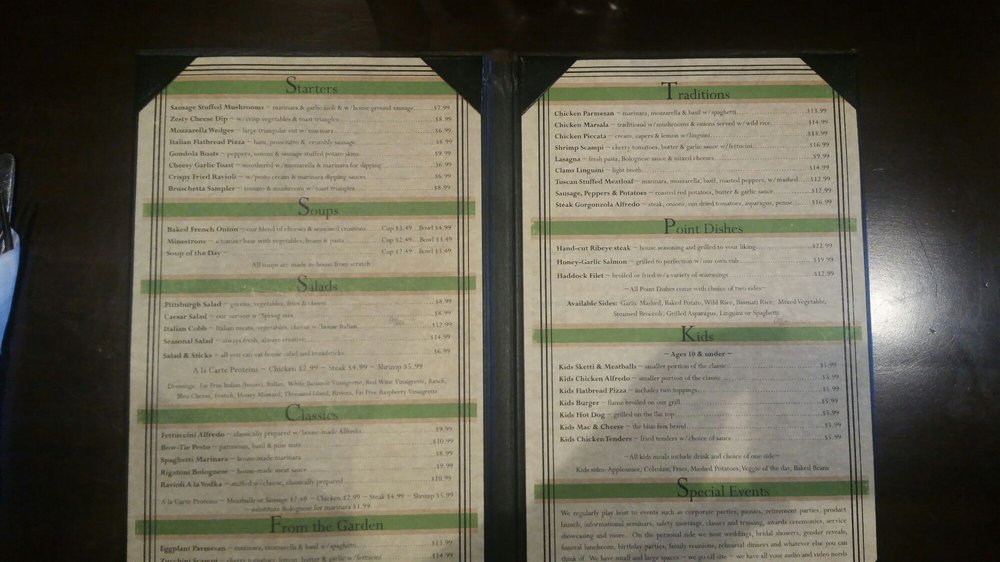 Starters
Sausage Stuffed Mushrooms ~ marinara & garlic aioli & w/house ground sausage $7.99
Zesty Cheese Dip ~ w/crisp vegetables & toast triangles $8.99
Mozzarella Wedges ~ large triangular cut w/marinara $6.99
Italian Flatbread Pizza ~ ham, prosciutto & crumbly sausage $8.99
Gondola Boats ~ peppers, onions & sausage stuffed potato skins $9.99
Cheesy Garlic Toast ~ smothered w/mozzarella & marinara for dipping $6.99
Crispy Fried Ravioli ~ w/pesto cream & marinara dipping sauces $6.99
Bruschetta Sampler ~ tomato & mushroom w/toast triangles $8.99
Soups
Baked French Onion ~ our blend of cheeses & seasoned croutons Cup $3.49 Bowl $4.99
Minestrone ~ a tomato base with vegetables, beans & pasta Cup $2.49 Bowl $3.49
Soup of the Day ~ Cup $2.49 Bowl $3.49
All soups are made in house from scratch
Salads
Pittsburgh Salad ~ greens, vegetables, fries & cheese $8.99
Caesar Salad ~ our version w/Spring mix $8.99
Italian Cobb ~ Italian meats, vegetables, cheese w/house Italian $12.99
Seasonal Salad ~ always fresh, always creative $14.99
Salad & Sticks ~ all you can eat house salad and breadsticks $6.99
A la Carte Proteins ~ Chicken $2.99 ~ Steak $4.99 ~ Shrimp $5.99
Dressings: Fat Free Italian (house), Italian, White Balsamic Vinaigrette, Red Wine Vinaigrette, Ranch,
Bleu Cheese, French, Honey Mustard, Thousand Island, Riviera, Fat Free Raspberry Vinaigrette
Classics
Fettuccini Alfredo ~ classically prepared w/house-made Alfredo $9.99
Bow-Tie Pesto ~ parmesan, basil & pine nuts $10.99
Spaghetti Marinara ~ house-made marinara $8.99
Rigatoni Bolognese ~ house-made meat sauce $9.99
Ravioli A la Vodka ~ stuffed w/cheese, classically prepared $10.99
A la Carte Proteins ~ Meatballs or Sausage $2.49 ~ Chicken $2.99 ~ Steak $4.99 ~ Shrimp $5.99
~ substitute Bolognese for marinara $1.99
From the Garden
Eggplant Parmesan ~ marinara, mozzarella & basil w/spaghetti $13.99
Zucchini Scampi ~ cherry tomatoes, butter & garlic w/fettucini $14.99
Traditions
Chicken Parmesan ~ marinara, mozzarella & basil w/spaghetti $13.99
Chicken Marsala ~ traditional w/mushrooms & onions served w/wild rice $14.99
Chicken Piccata ~ cream, capers & lemon w/linguini $13.99
Shrimp Scampi ~ cherry tomatoes, butter & garlic sauce w/fettucini $16.99
Lasagna ~ fresh pasta, Bolognese sauce & mixed cheeses $9.99
Clams Linguini ~ light broth $14.99
Tuscan Stuffed Meatloaf ~ marinara, mozzarella, basil, roasted peppers, w/mashed $12.99
Sausage, Peppers & Potatoes ~ roasted red potatoes, butter & garlic sauce $12.99
Steak Gorgonzola Alfredo ~ steak, onions, sun dried tomatoes, asparagus, penne $16.99
Point Dishes
Hand-cut Ribeye steak ~ house seasoning and grilled to your liking $22.99
Honey-Garlic Salmon ~ grilled to perfection w/our own rub $19.99
Haddock Filet ~ broiled or fried w/a variety of seasonings $12.99
~All Point Dishes come with choice of two sides~
Available Sides: Garlic Mashed, Baked Potato, Wild Rice, Basmati Rice, Mixed Vegetable,
Steamed Broccoli, Grilled Asparagus, Linguini or Spaghetti
Kids
~ Ages 10 & under ~
Kids Sketti & Meatballs ~ smaller portion of the classic $5.99
Kids Chicken Alfredo ~ smaller portion of the classic $5.99
Kids Flatbread Pizza ~ includes two toppings $5.99
Kids Burger ~ flame broiled on our grill $5.99
Kids Hot Dog ~ grilled on the flat top $5.99
Kids Mac & Cheese ~ the blue box brand $5.99
Kids Chicken Tenders ~ fried tenders w/choice of sauce $5.99
~All kids meals include drink and choice of one side~
Kids sides- Applesauce, Coleslaw, Fries, Mashed Potatoes, Veggie of the day, Baked Beans
Special Events
We regularly play host to events such as corporate parties, picnics, retirement parties, product
launch, informational seminars, safety meetings, classes and training, awards ceremonies, service
showcasing and more. On the personal side we host weddings, bridal showers, gender reveals,
funeral luncheons, birthday parties, family reunions, rehearsal dinners and whatever else you can
think of. We have small and large spaces ~ we go off-site ~ we have all your audio and video needs